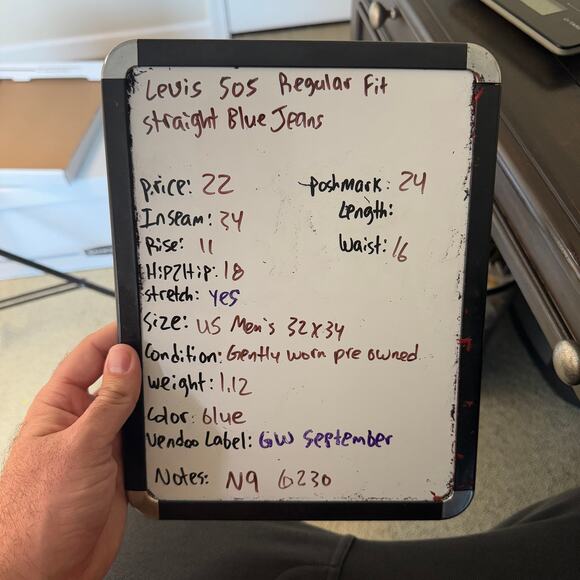 Levis 505 Regular Fit
straight Blue Jeans
price: 22
poshmark: 24
Inseam: 34
Length:
Rise: 11
Waist: 16
Hip2Hip: 18
stretch: yes
Size: US Men's 32x34
Condition: Gently worn pre owned
weight: 1.12
Color: blue
Vendoo Label: GW September
Notes: N9 6230